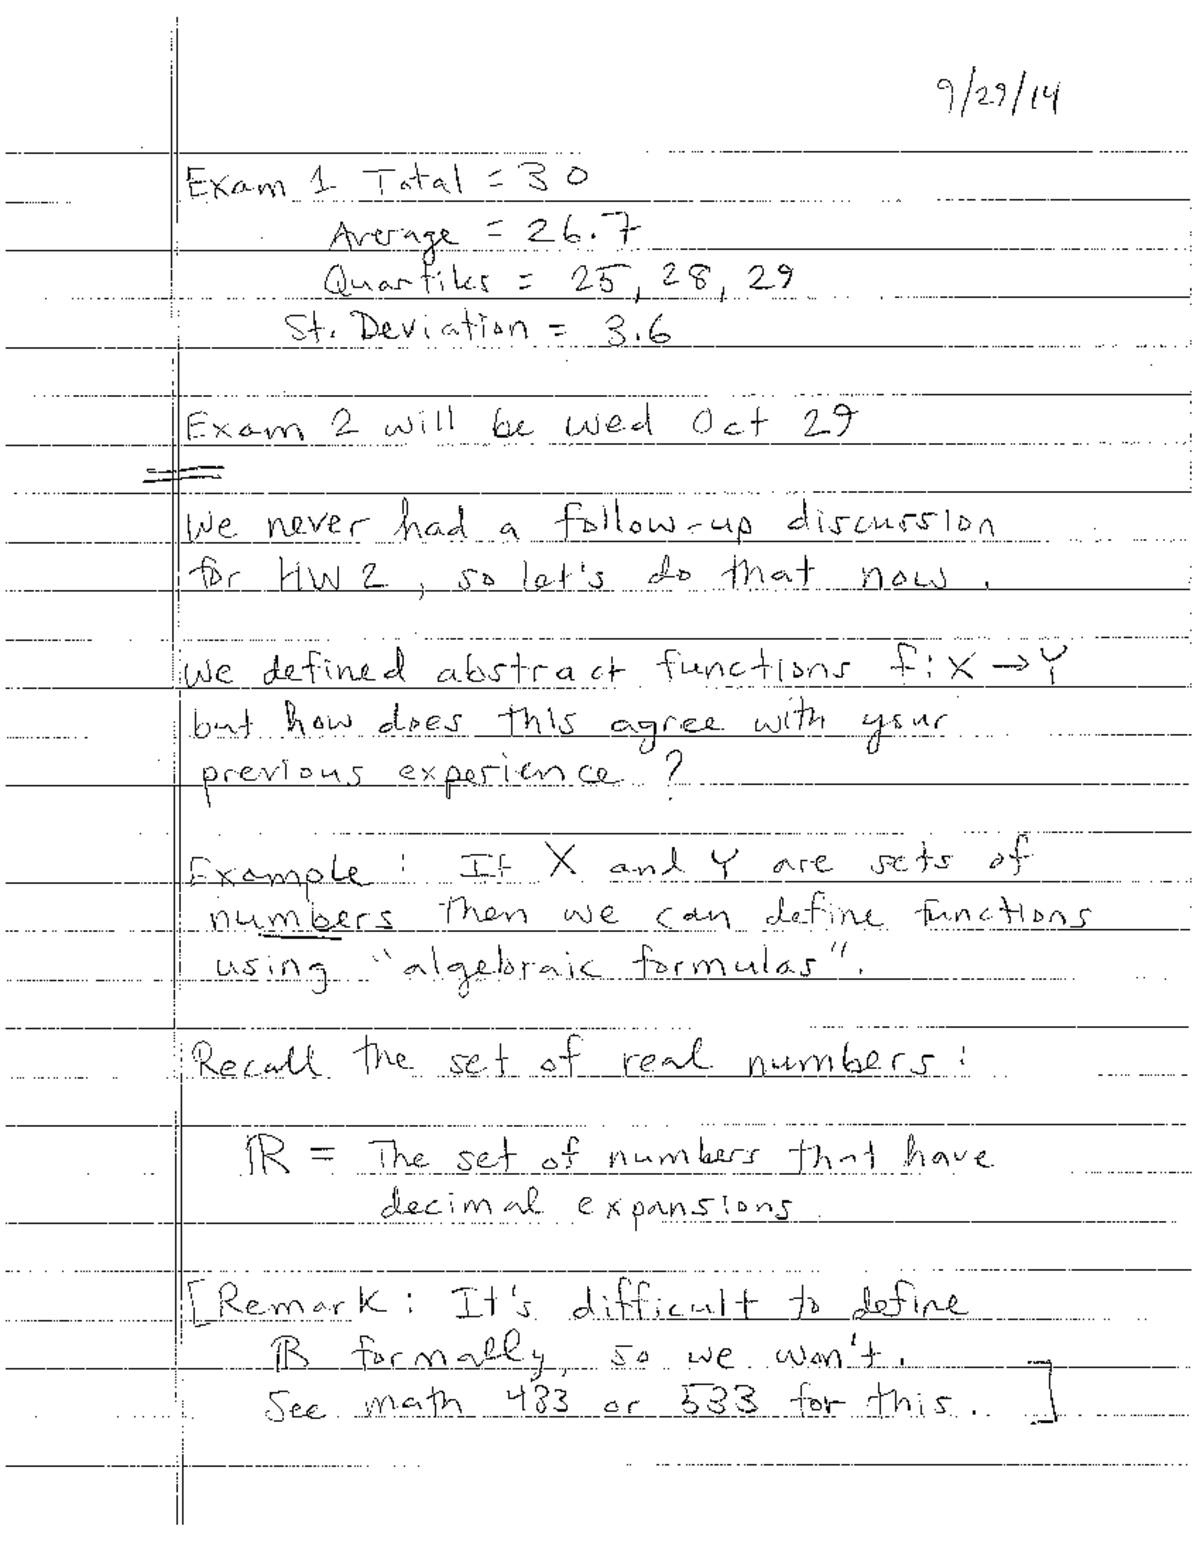 9/29/14
Exam 1 Total = 30
Average = 26.7
Quartiles = 25, 28, 29
St. Deviation = 3.6
Exam 2 will be Wed Oct 29
We never had a follow-up discussion
for HW 2, so let's do that now.
We defined abstract functions f: X → Y
but how does this agree with your
previous experience?
Example: If X and Y are sets of
numbers then we can define functions
using "algebraic formulas".
Recall the set of real numbers:
ℝ = The set of numbers that have
decimal expansions.
[Remark: It's difficult to define
ℝ formally, so we won't.
See math 433 or 533 for this.]